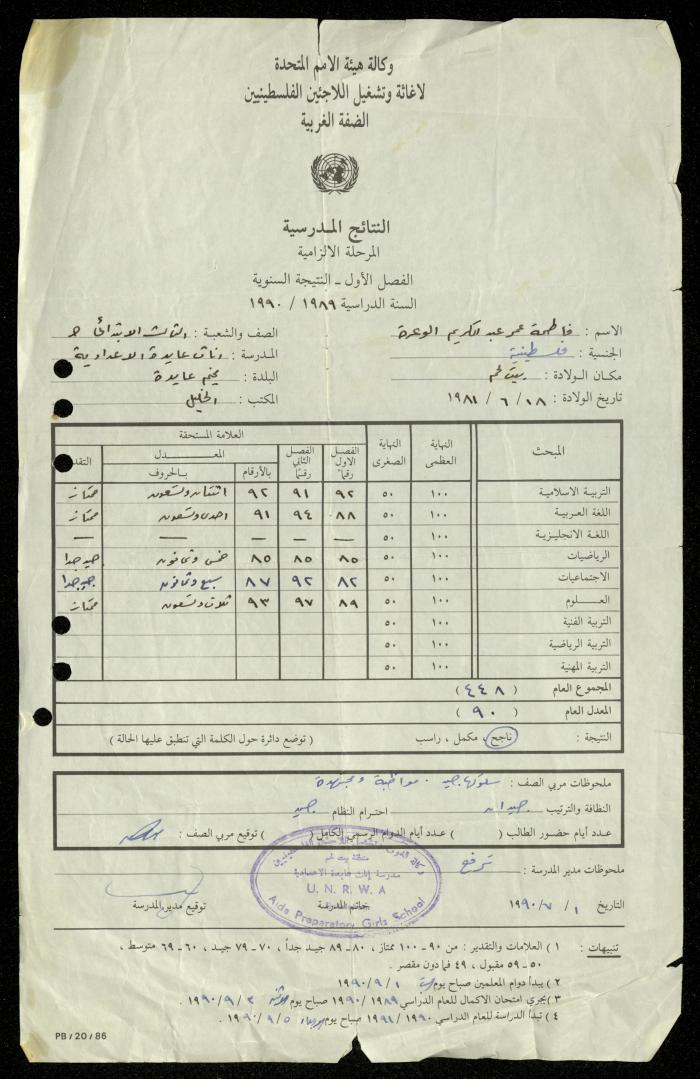 وكالة هيئة الامم المتحدة
لاغاثة وتشغيل اللاجئين الفلسطينيين
الضفة الغربية
النتائج المدرسية
المرحلة الالزامية
الفصل الأول - النتيجة السنوية
السنة الدراسية ١٩٨٩ / ١٩٩٠
الاسم : فاطمة عمر عبد الكريم الوعرة الصف والشعبة : الثالث الابتدائي
الجنسية : فلسطينية المدرسة : اناث عايدة الاعدادية
مكان الولادة : بيت لحم البلدة : مخيم عايدة
تاريخ الولادة : ١٨ / ٦ / ١٩٨١ المكتب : الخليل
المبحث النهاية العظمى النهاية الصغرى العلامة المستحقة
الفصل الأول رقماً الفصل الثاني رقماً المعدل بالأرقام بالحروف التقد
التربية الاسلامية ١٠٠ ٥٠ ٩٢ ٩١ ٩٢ اثنتان وتسعون ممتاز
اللغة العربية ١٠٠ ٥٠ ٨٨ ٩٤ ٩١ احدى وتسعون ممتاز
اللغة الانجليزية ١٠٠ ٥٠ — — — — —
الرياضيات ١٠٠ ٥٠ ٨٥ ٨٥ ٨٥ خمس وثمانون جيد جدا
الاجتماعيات ١٠٠ ٥٠ ٨٢ ٩٢ ٨٧ سبع وثمانون جيد جدا
العلوم ١٠٠ ٥٠ ٨٩ ٩٧ ٩٣ ثلاث وتسعون ممتاز
التربية الفنية ١٠٠ ٥٠
التربية الرياضية ١٠٠ ٥٠
التربية المهنية ١٠٠ ٥٠
المجموع العام ( ٤٤٨ )
المعدل العام ( ٩٠ )
النتيجة : ناجح ، مكمل ، راسب ( توضع دائرة حول الكلمة التي تنطبق عليها الحالة )
ملحوظات مربي الصف : سلوكها جيد . مواظبة ومجتهدة
النظافة والترتيب جيدان احترام النظام جيد
عدد أيام حضور الطالب ( ) عدد أيام الدوام الرسمي الكامل ( ) توقيع مربي الصف :
ملحوظات مدير المدرسة : ترفع
التاريخ ١ / ٧ / ١٩٩٠ خاتم المدرسة توقيع مدير المدرسة
منطقة بيت لحم
U. N. R. W. A
Aida Preparatory Girls School
تنبيهات : ١ ) العلامات والتقدير : من ٩٠ - ١٠٠ ممتاز ، ٨٠ - ٨٩ جيد جداً ، ٧٠ - ٧٩ جيد ، ٦٠ - ٦٩ متوسط ،
٥٠ - ٥٩ مقبول ، ٤٩ فما دون مقصر .
٢ ) يبدأ دوام المعلمين صباح يوم السبت ١ / ٩ / ١٩٩٠
٣ ) يجري امتحان الاكمال للعام الدراسي ١٩٨٩ / ١٩٩٠ صباح يوم الاثنين ٣ / ٩ / ١٩٩٠ .
٤ ) تبدأ الدراسة للعام الدراسي ١٩٩٠ / ١٩٩١ صباح يوم الاربعاء ٥ / ٩ / ١٩٩٠ .
PB / 20 / 86